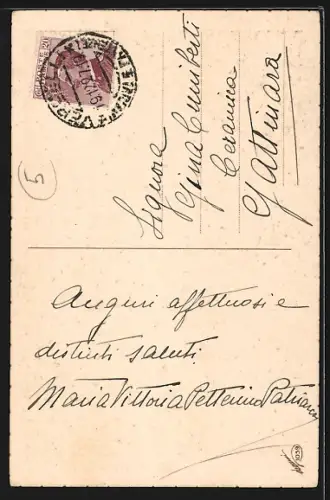 VERCELLI
Signora
Gina Cuniberti
Ceramica
Gattinara
5
Auguri affettuosi e
distinti saluti.
Maria Vittoria Pettenino Patriarca